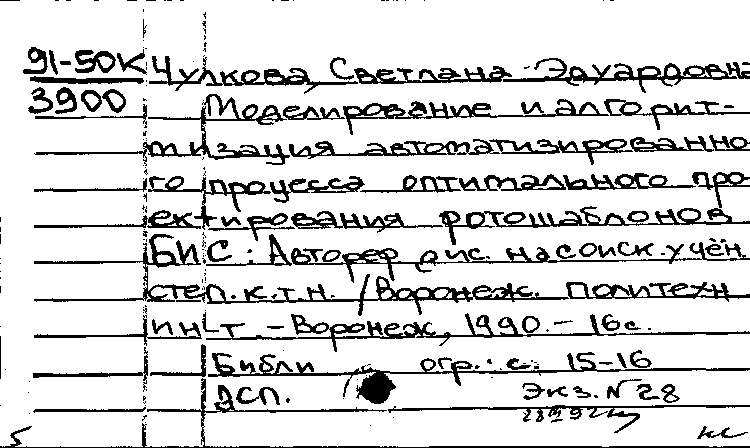 91-50К Чулкова, Светлана Эдуардовна
3900 Моделирование и алгорит-
мизация автоматизированно
го процесса оптимального про
ектирования фотошаблонов
БИС: Автореф дис. на соиск. учён
степ. к.т.н. / Воронеж. политехн
ин-т. - Воронеж, 1990. - 16с.
Библи огр.: с. 15-16
ДСП. Экз. N 28
5 кс